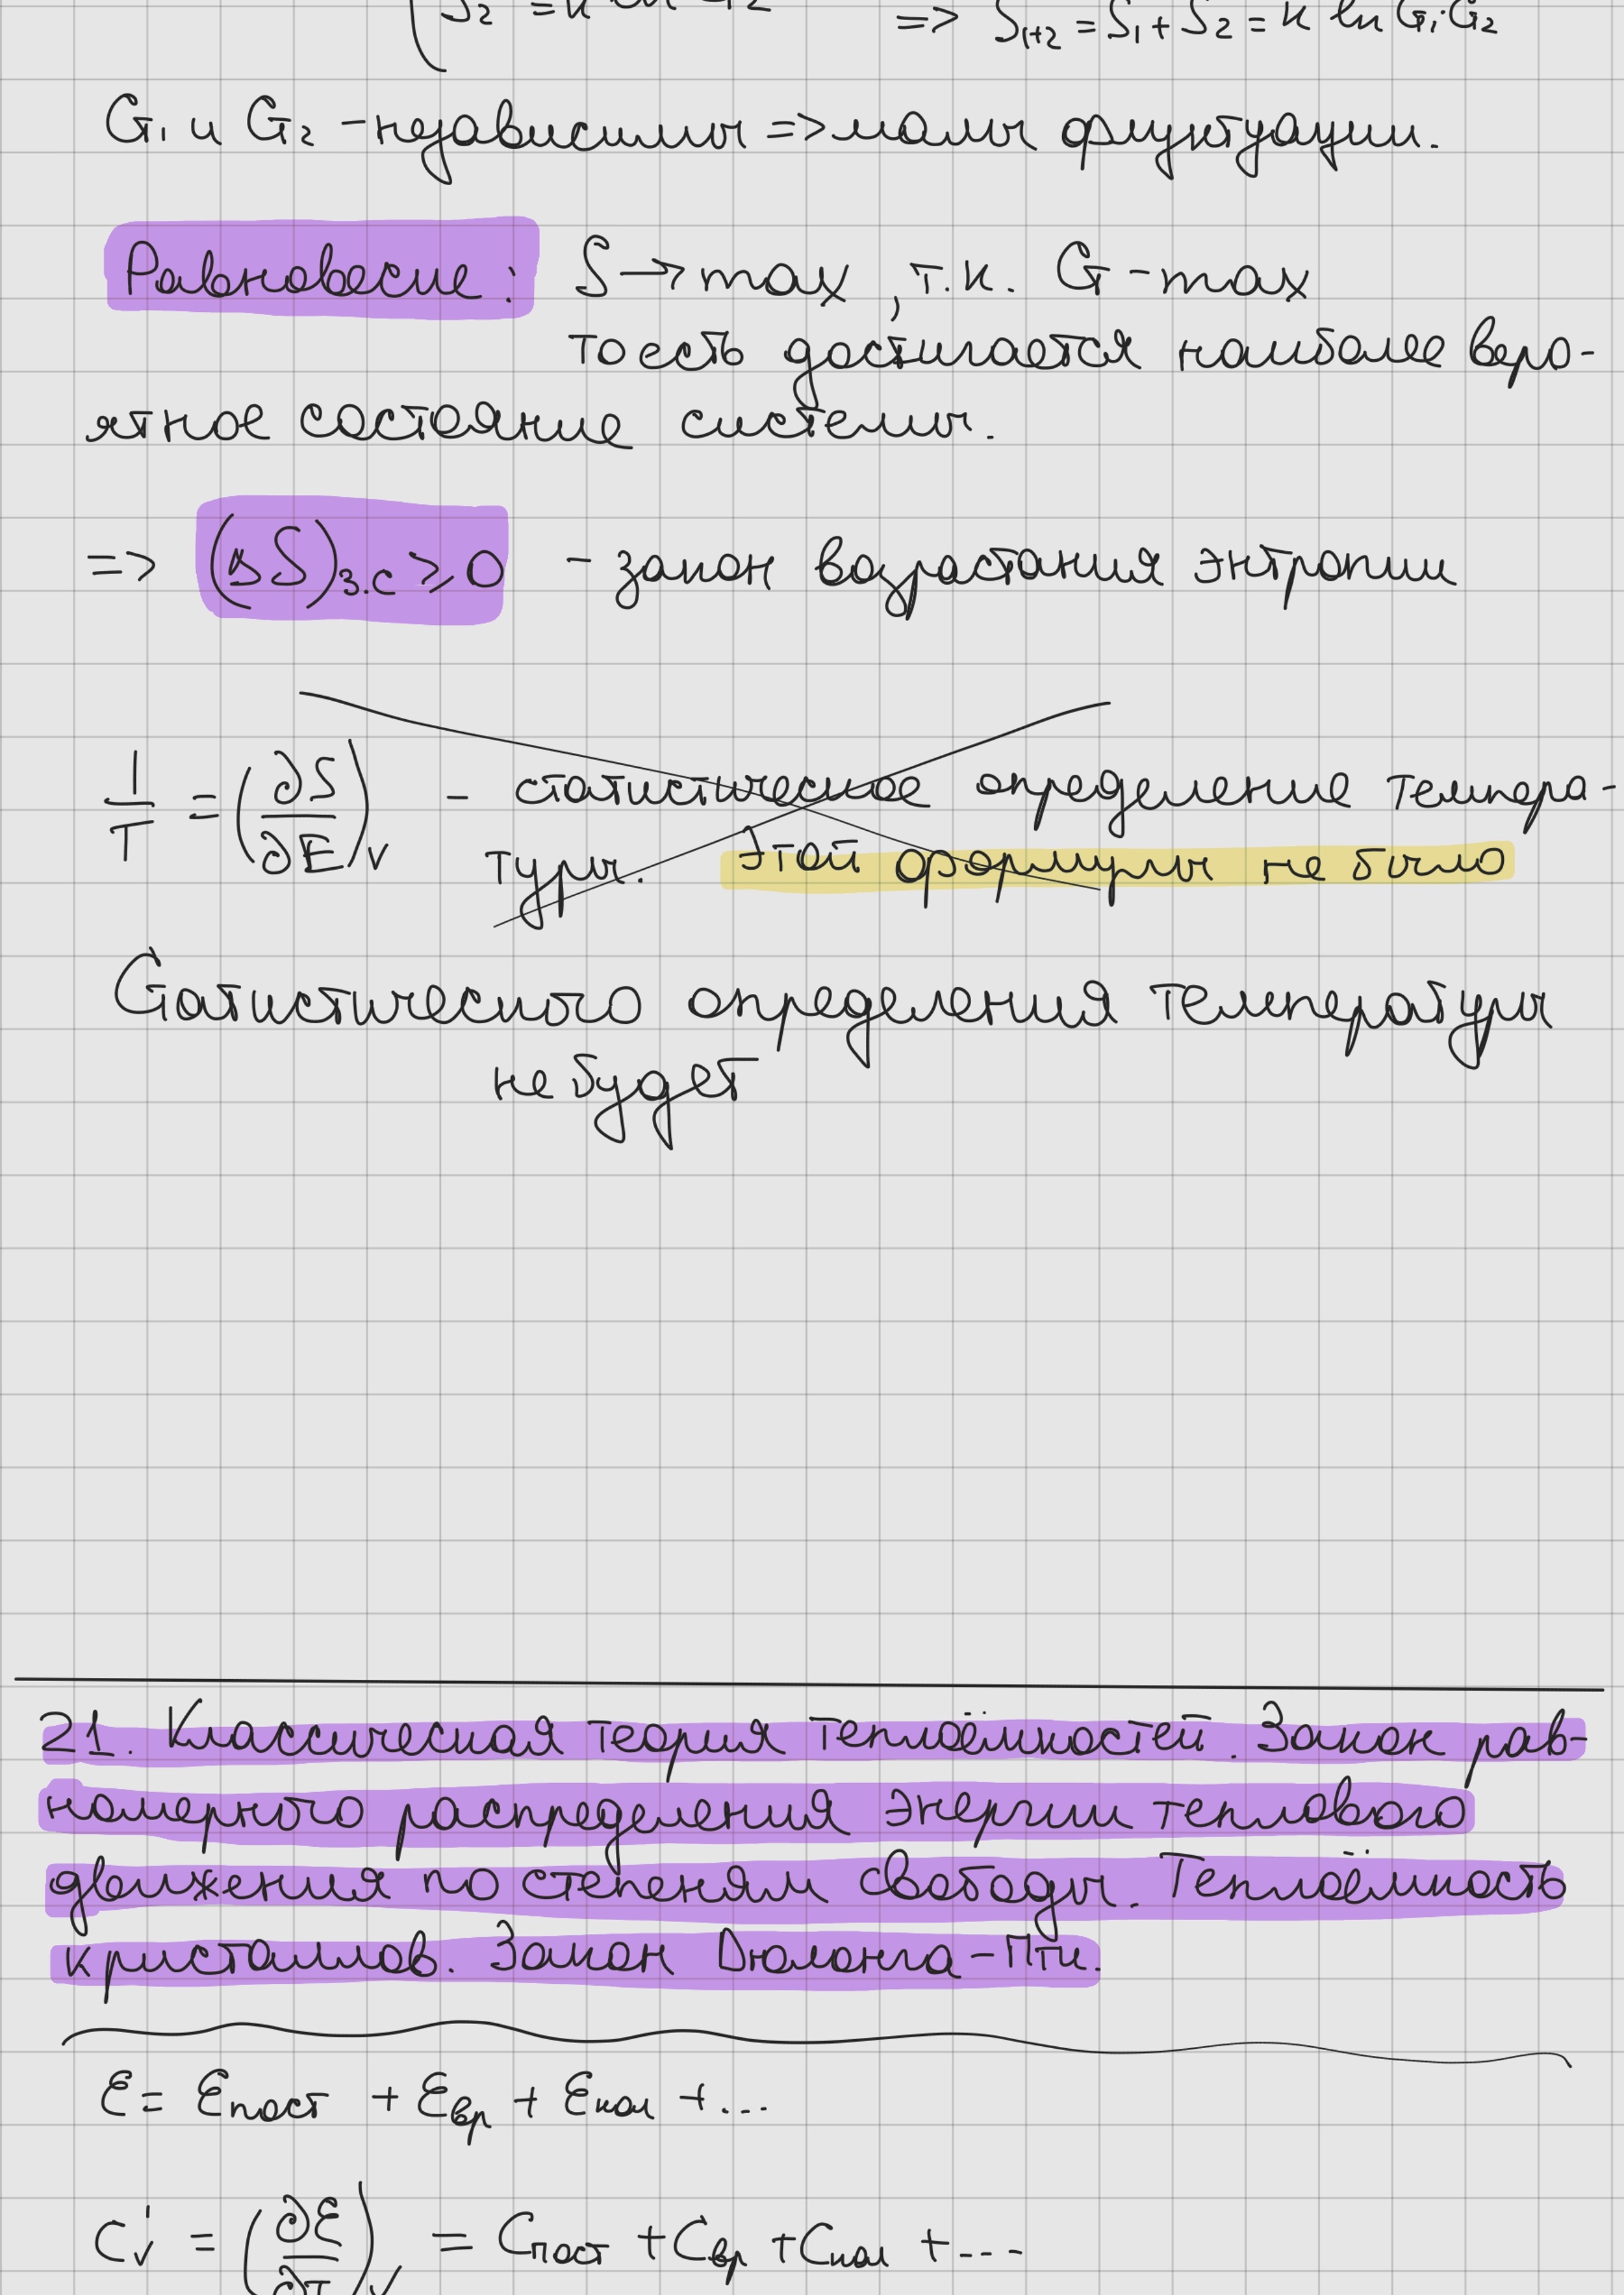 S₂ = к ln
=> S₁₊₂ = S₁ + S₂ = к ln G₁·G₂
G₁ и G₂ - независимы => малы флуктуации.
Равновесие: S → max, т.к. G - max
то есть достигается наиболее веро-
ятное состояние системы.
=> (ΔS)з.с ⩾ 0 - закон возрастания энтропии
1/T = (∂S/∂E)V - статистическое определение темпера-
туры. Этой формулы не было
Статистического определения температуры
не будет
21. Классическая теория теплоёмкостей. Закон рав-
номерного распределения энергии теплового
движения по степеням свободы. Теплоёмкость
кристаллов. Закон Дюлонга-Пти.
Ɛ = Ɛпост + Ɛвр + Ɛкол + ...
CV' = (∂Ɛ/∂T)V = Cпост + Cвр + Cкол + ...